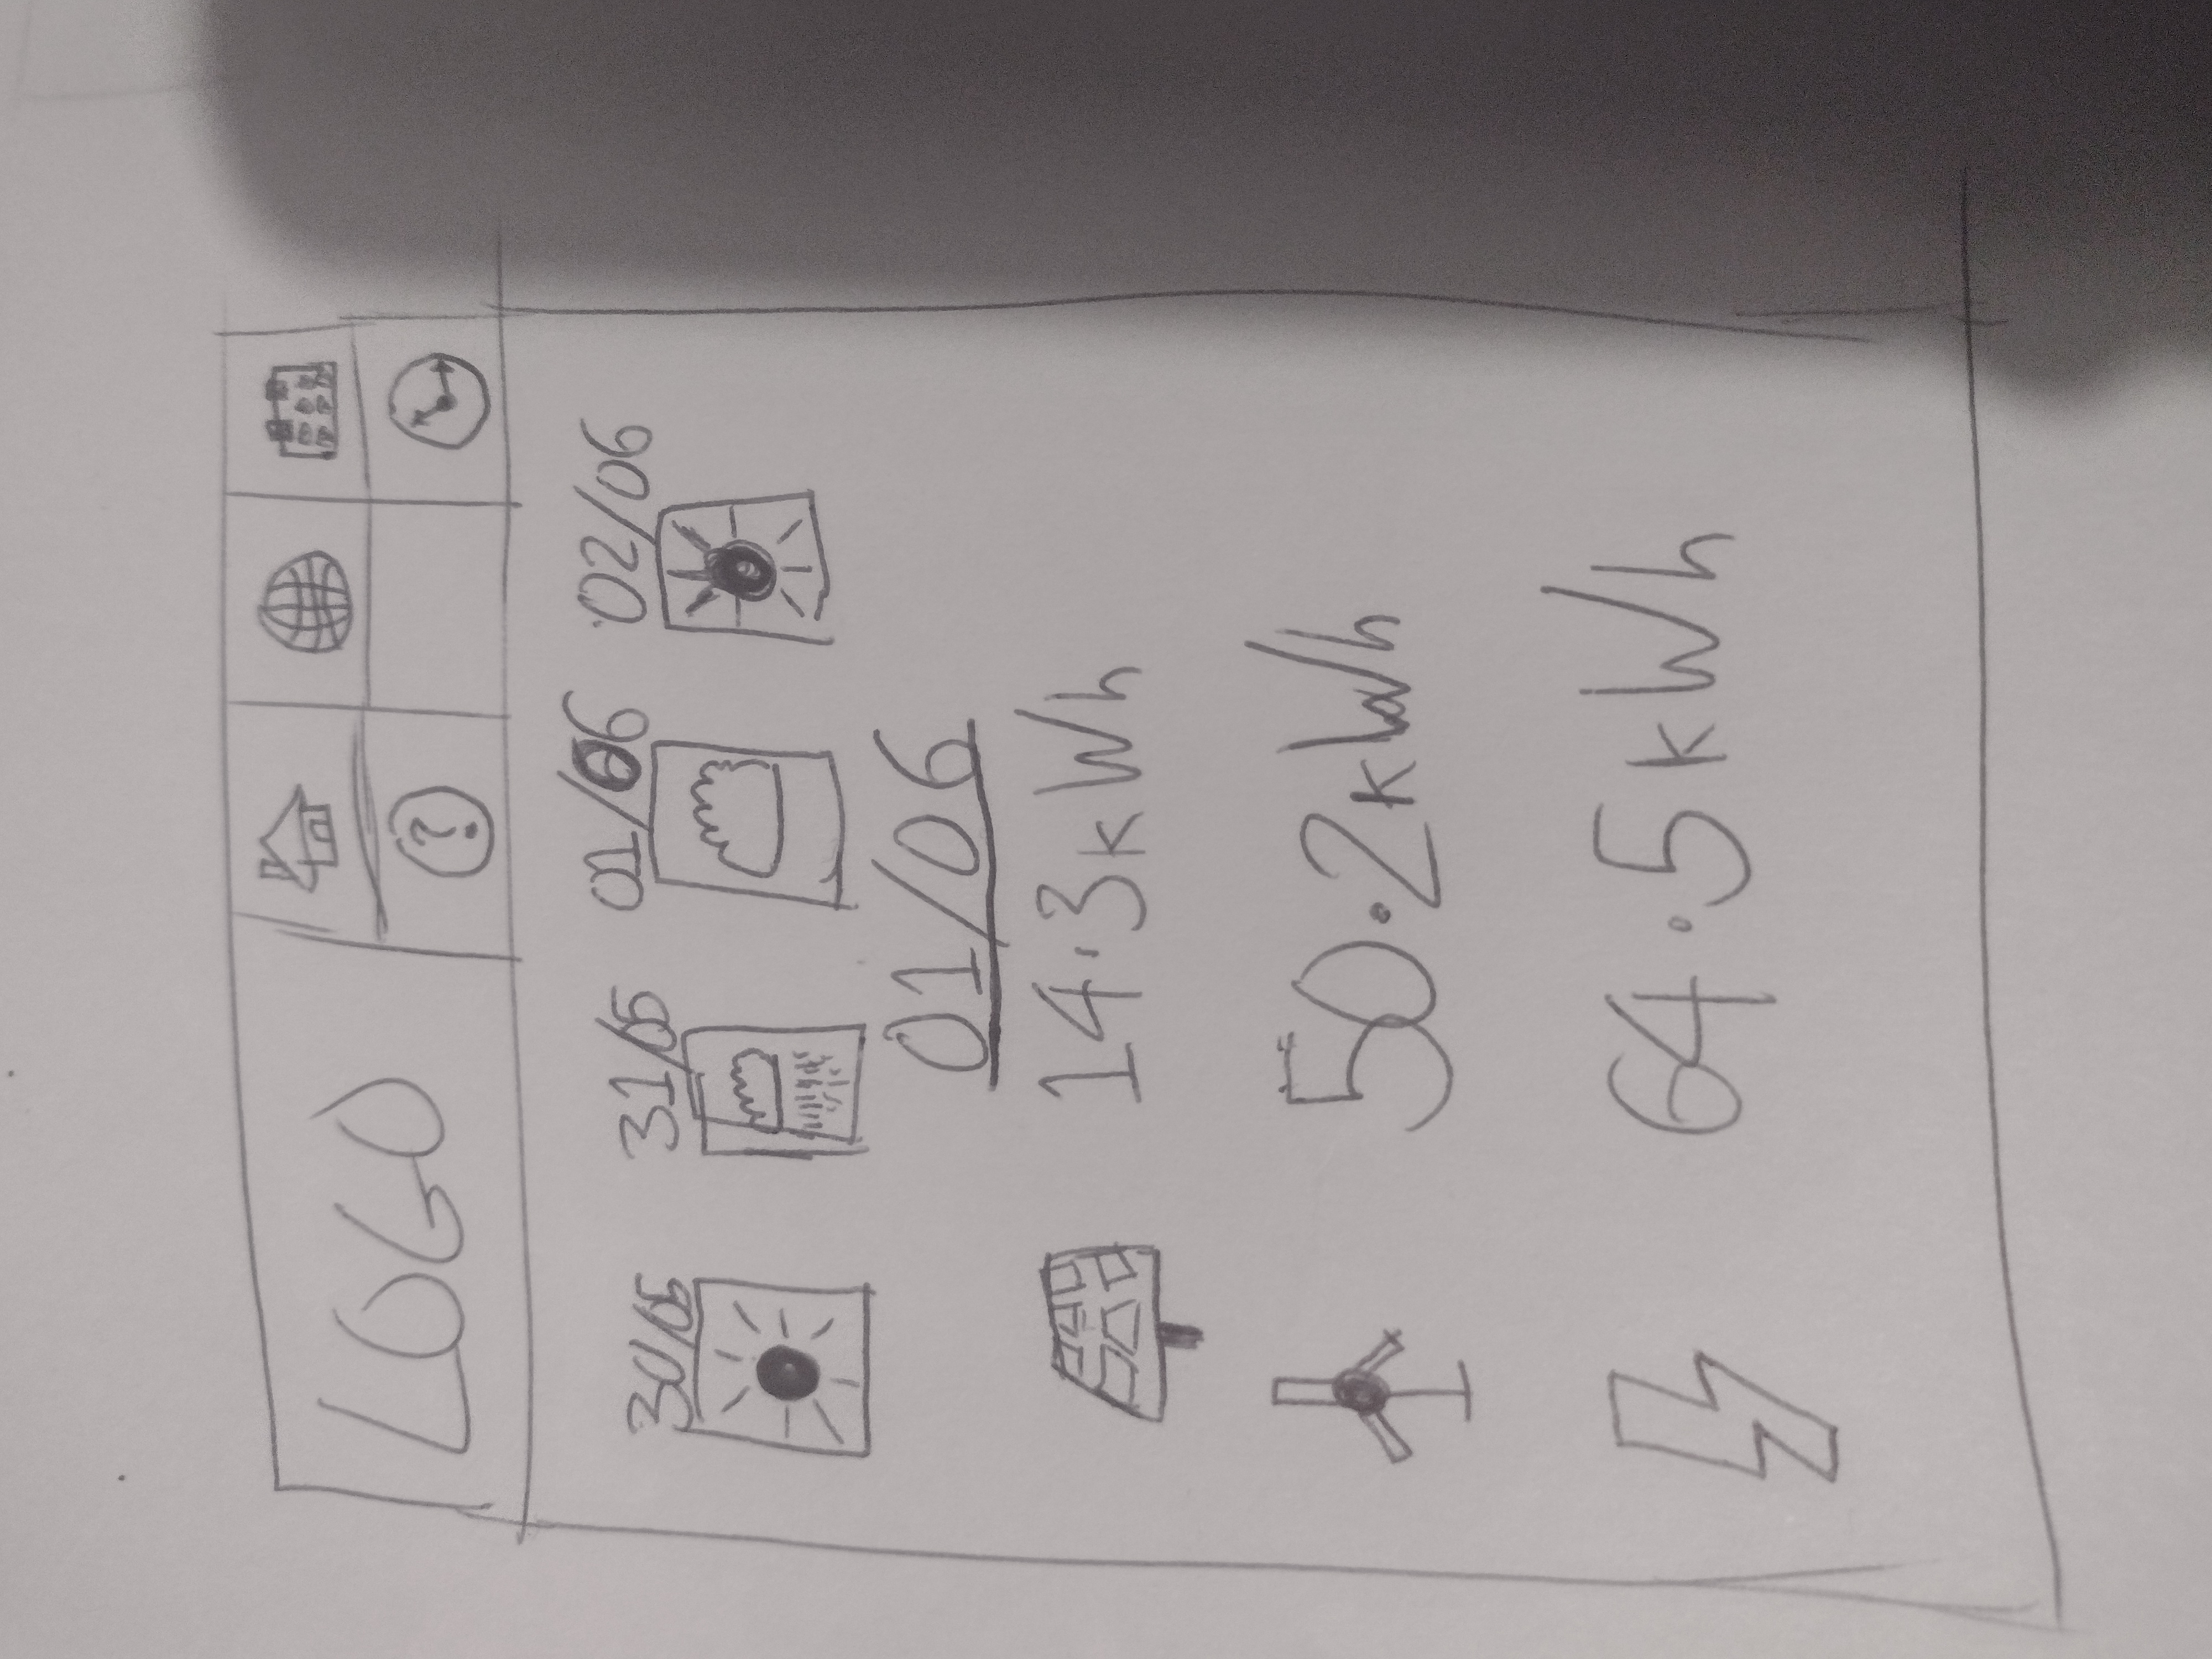 LOGO
?
30/05 31/05 01/06 02/06
01/06
14.3kWh
50.2kWh
64.5kWh